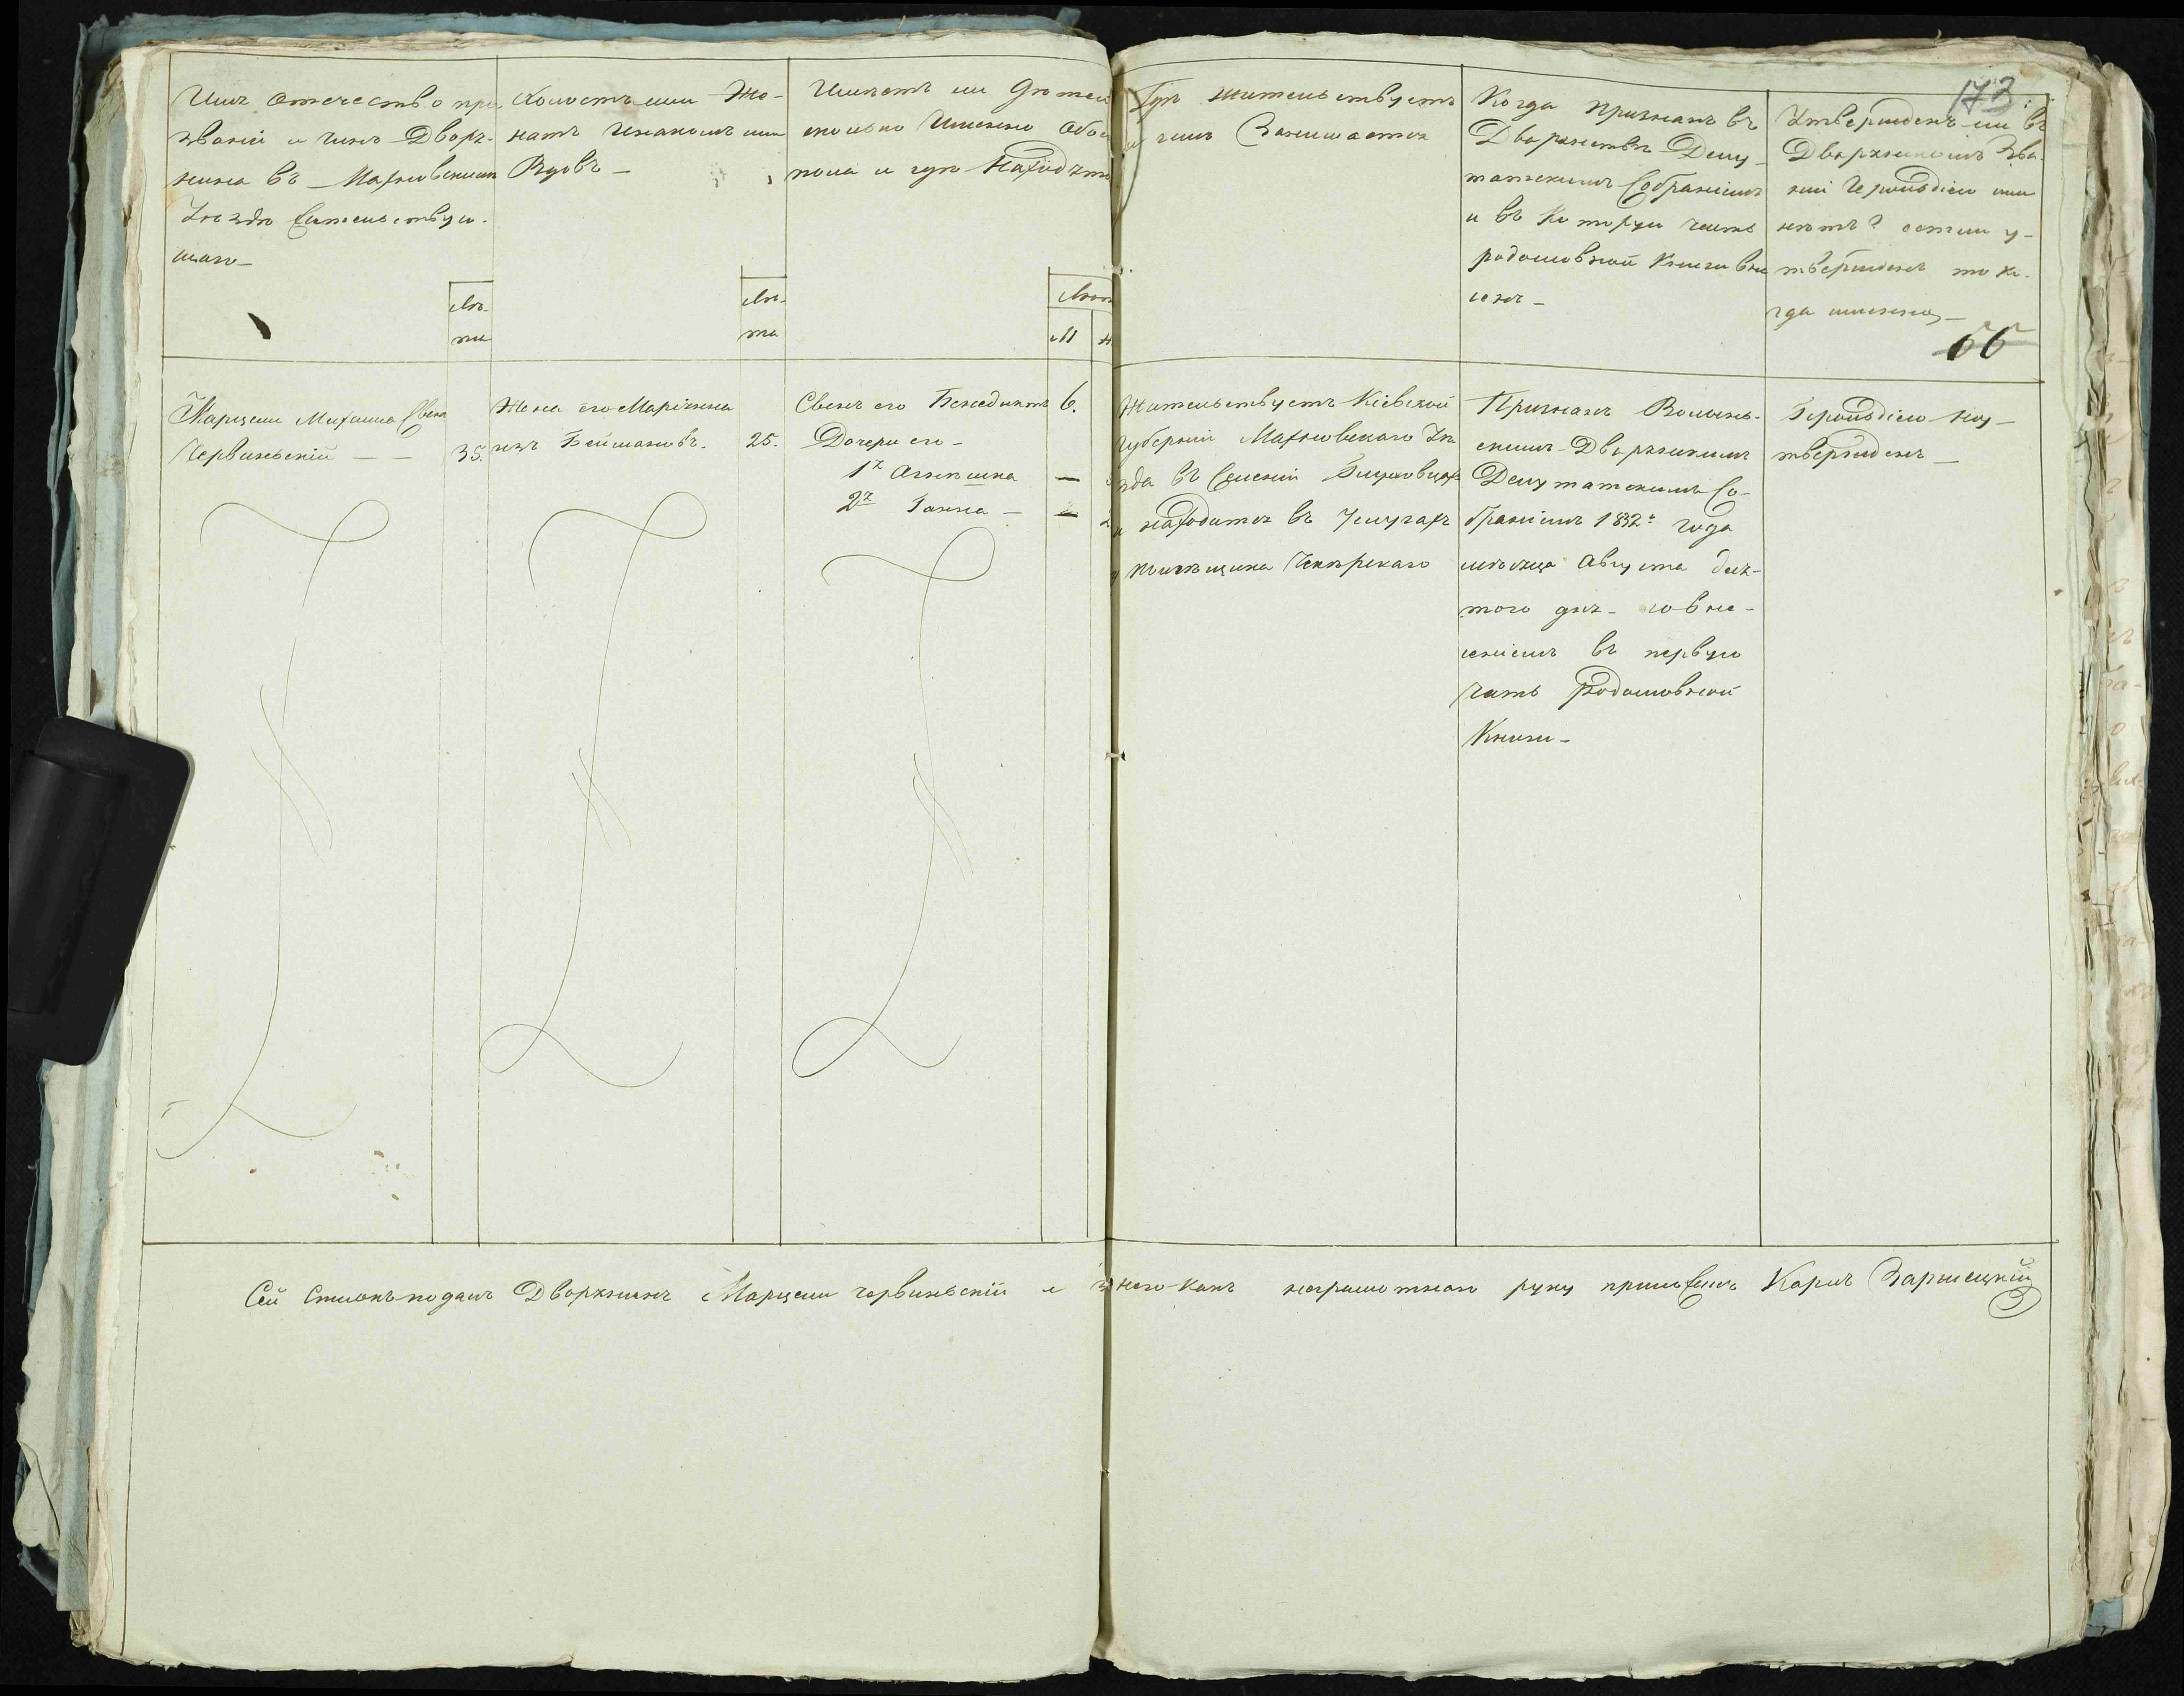 173
66
Имя отечество про
званій и чинъ Дворя-
нина въ Махновскимъ
Уѣздѣ Жительствую-
щаго
Лѣ-
та
Холостъ или Же-
натъ и на комъ или
Вдовъ
Лѣ-
та
Имѣетъ ли дѣтей
сколько Именно обои
пола и где Находятся
Лѣта
М
Гдѣ жительствуетъ
и чимъ Занимается
Когда признанъ въ
Дворянствѣ Депу-
татскимъ Собраніемъ
и въ Которую часть
родословной Книги вне
сенъ
Утвержденъ ли въ
Дворянскомъ Зва-
ніи Герольдіею или
нѣтъ? естли у-
твержденъ то ко-
гда именно
Марцели Михаила Сынъ
Червинскій — — 35.
Жена его Маріянна
изъ Беймановъ. 25.
Сынъ его Бенедиктъ 6.
Дочери его
1я Агнешка —
2я Ганна — —
Жительствуетъ Кіевской
Губерніи Махновскаго Уѣ
зда въ Селеніи
и находится въ услугахъ
у помѣщика
Признанъ Волынь-
скимъ Дворянскимъ
Депутатскимъ Со-
браніемъ 1832: года
мѣсяца Августа девя-
того дня со вне-
сеніемъ въ первую
часть Родословной
Книги
Герольдіею неу-
твержденъ
Сей Списокъ подалъ Дворянинъ Марцели Червинскій а за него какъ неграмотнаго руку приложилъ Карлъ Заржецкій